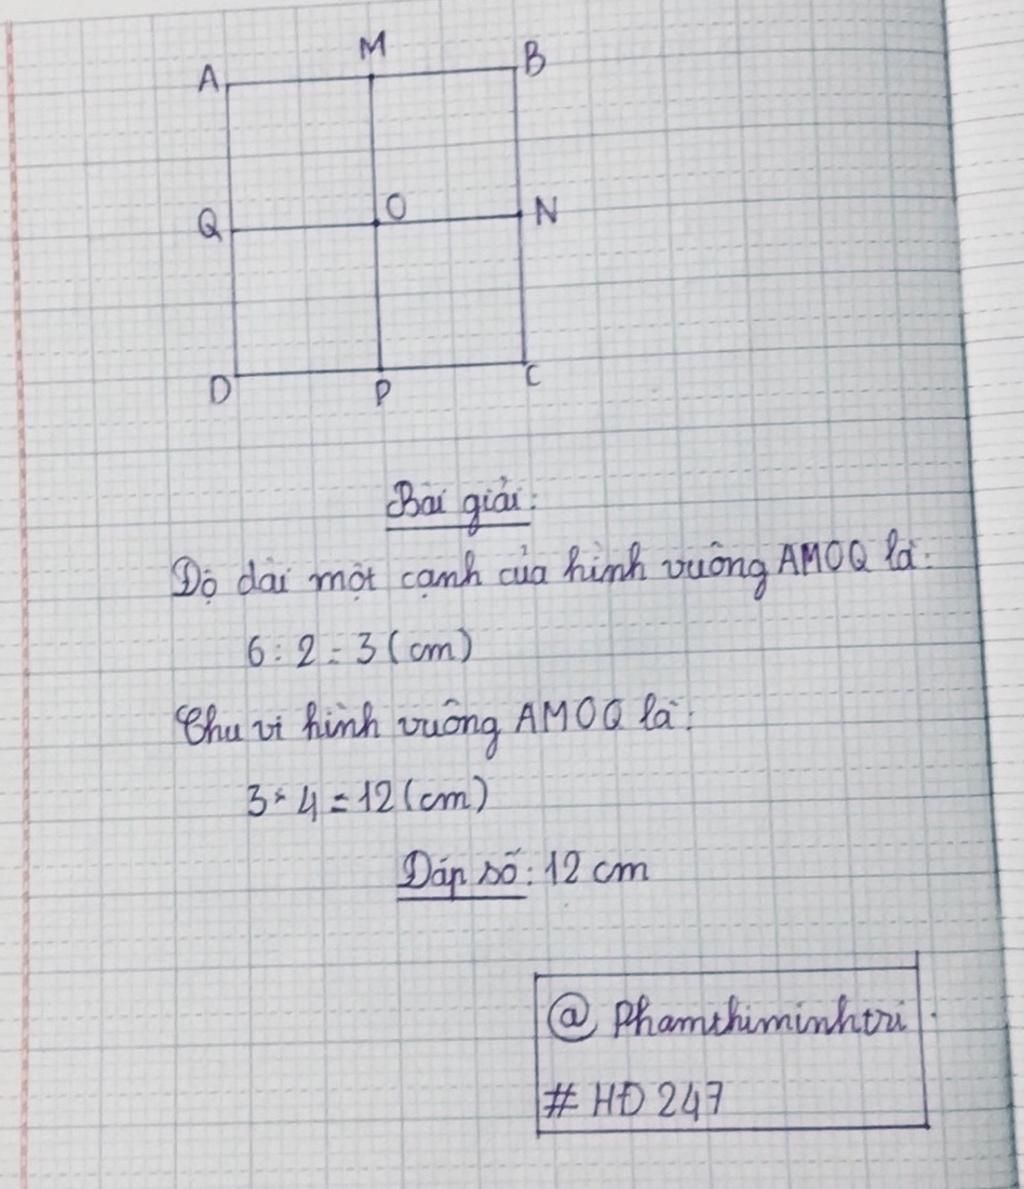 M
A
B
Q
O
N
D
P
C
Bài giải:
Độ dài một cạnh của hình vuông AMOQ là:
6 : 2 = 3 (cm)
Chu vi hình vuông AMOQ là:
3 × 4 = 12 (cm)
Đáp số: 12 cm
@ Phamthiminhtri
# HĐ 247